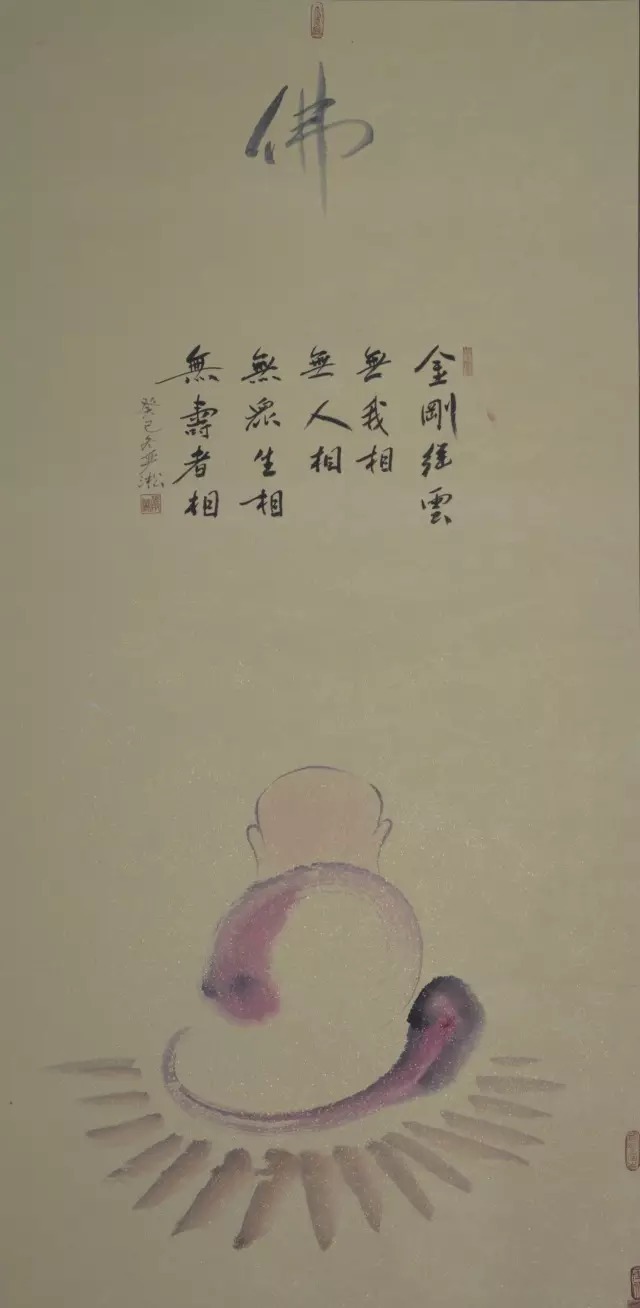 佛
金剛經雲
無我相
無人相
無眾生相
無壽者相
癸巳冬亞淞